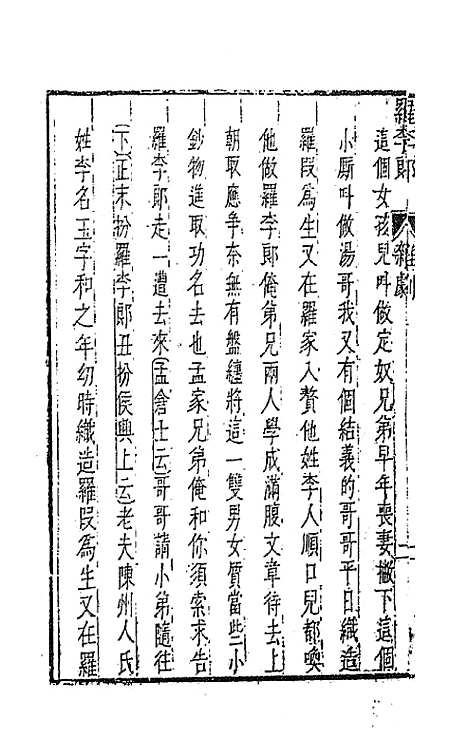 羅李郎 雜劇 二
這個女孩兒叫做定奴兄弟早年喪妻撇下這個
小廝叫做湯哥我又有個結義的哥哥平日織造
羅段爲生又在羅家入贅他姓李人順口兒都喚
他做羅李郎俺弟兄兩人學成滿腹文章待去上
朝取應爭奈無有盤纏將這一雙男女質當些小
鈔物進取功名去也孟家兄弟俺和你須索求告
羅李郎走一遭去來(孟倉士云)哥哥請小弟隨往
(下)(正末扮羅李郎丑扮侯興上云)老夫陳州人氏
姓李名玉字和之年幼時織造羅段爲生又在羅